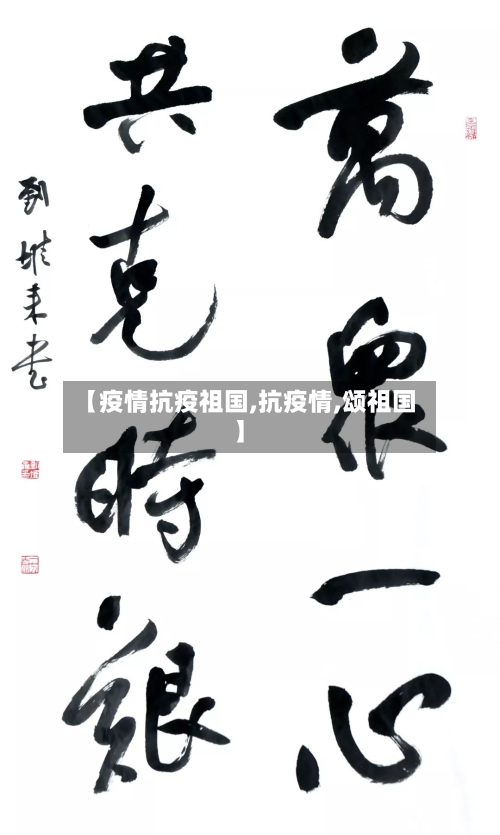 萬衆一心
共克時艱
【疫情抗疫祖国,抗疫情,颂祖国
】